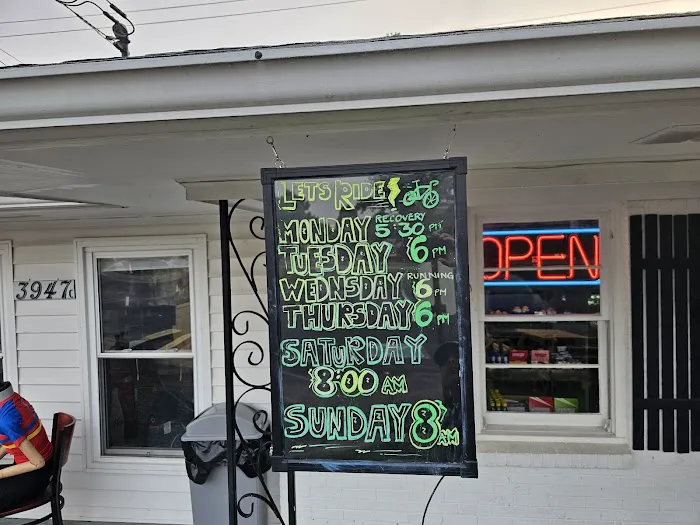 LET'S RIDE!
MONDAY RECOVERY 5:30 PM
TUESDAY 6 PM
WEDNSDAY RUNNING 6 PM
THURSDAY 6 PM
SATURDAY
8:00 AM
SUNDAY 8 AM
OPEN
3947